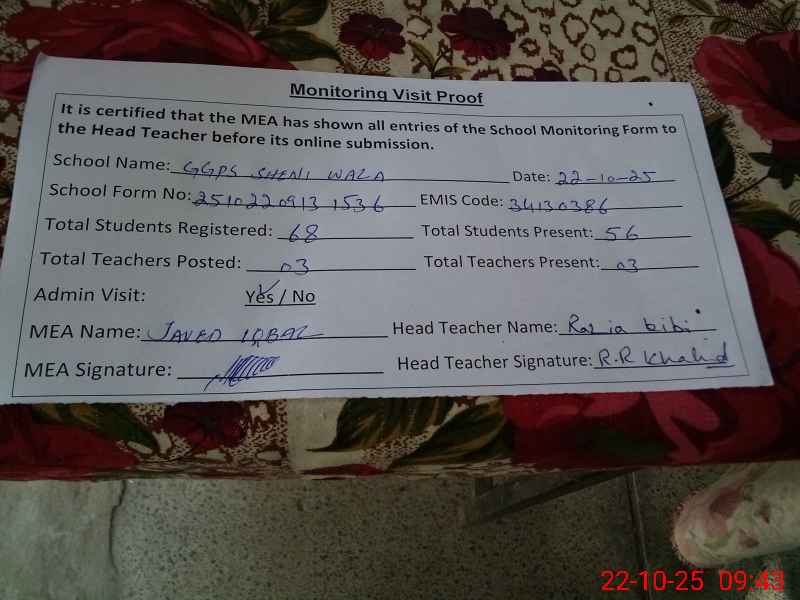 Monitoring Visit Proof
It is certified that the MEA has shown all entries of the School Monitoring Form to
the Head Teacher before its online submission.
School Name: GGPS SHENI WALA Date: 22-10-25
School Form No: 2510220913 1536 EMIS Code: 34130386
Total Students Registered: 68 Total Students Present: 56
Total Teachers Posted: 03 Total Teachers Present: 03
Admin Visit: Yes / No
MEA Name: JAVED IQBAL Head Teacher Name: Razia bibi
MEA Signature: Head Teacher Signature: R.R Khalid
22-10-25 09:43